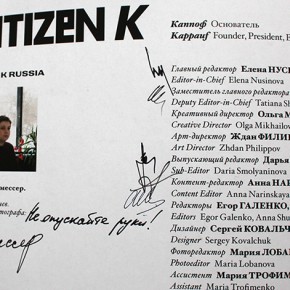 ITIZEN K
K RUSSIA
мессер.
Не опускайте руки!
Каппоф Основатель
Kappauf Founder, President, E
Главный редактор Елена НУС
Editor-in-Chief Elena Nusinova
Заместитель главного редактора
Deputy Editor-in-Chief Tatiana Sh
Креативный директор Ольга М
Creative Director Olga Mikhailov
Арт-директор Ждан ФИЛИ
Art Director Zhdan Philippov
Выпускающий редактор Дарья
Sub-Editor Daria Smolyaninova
Контент-редактор Анна НАР
Content Editor Anna Narinskaya
Редакторы Егор ГАЛЕНКО,
Editors Egor Galenko, Anna Shu
Дизайнер Сергей КОВАЛЬЧ
Designer Sergey Kovalchuk
Фоторедактор Мария ЛОБАН
Photoeditor Maria Lobanova
Ассистент Мария ТРОФИМ
Assistant Maria Trofimenko